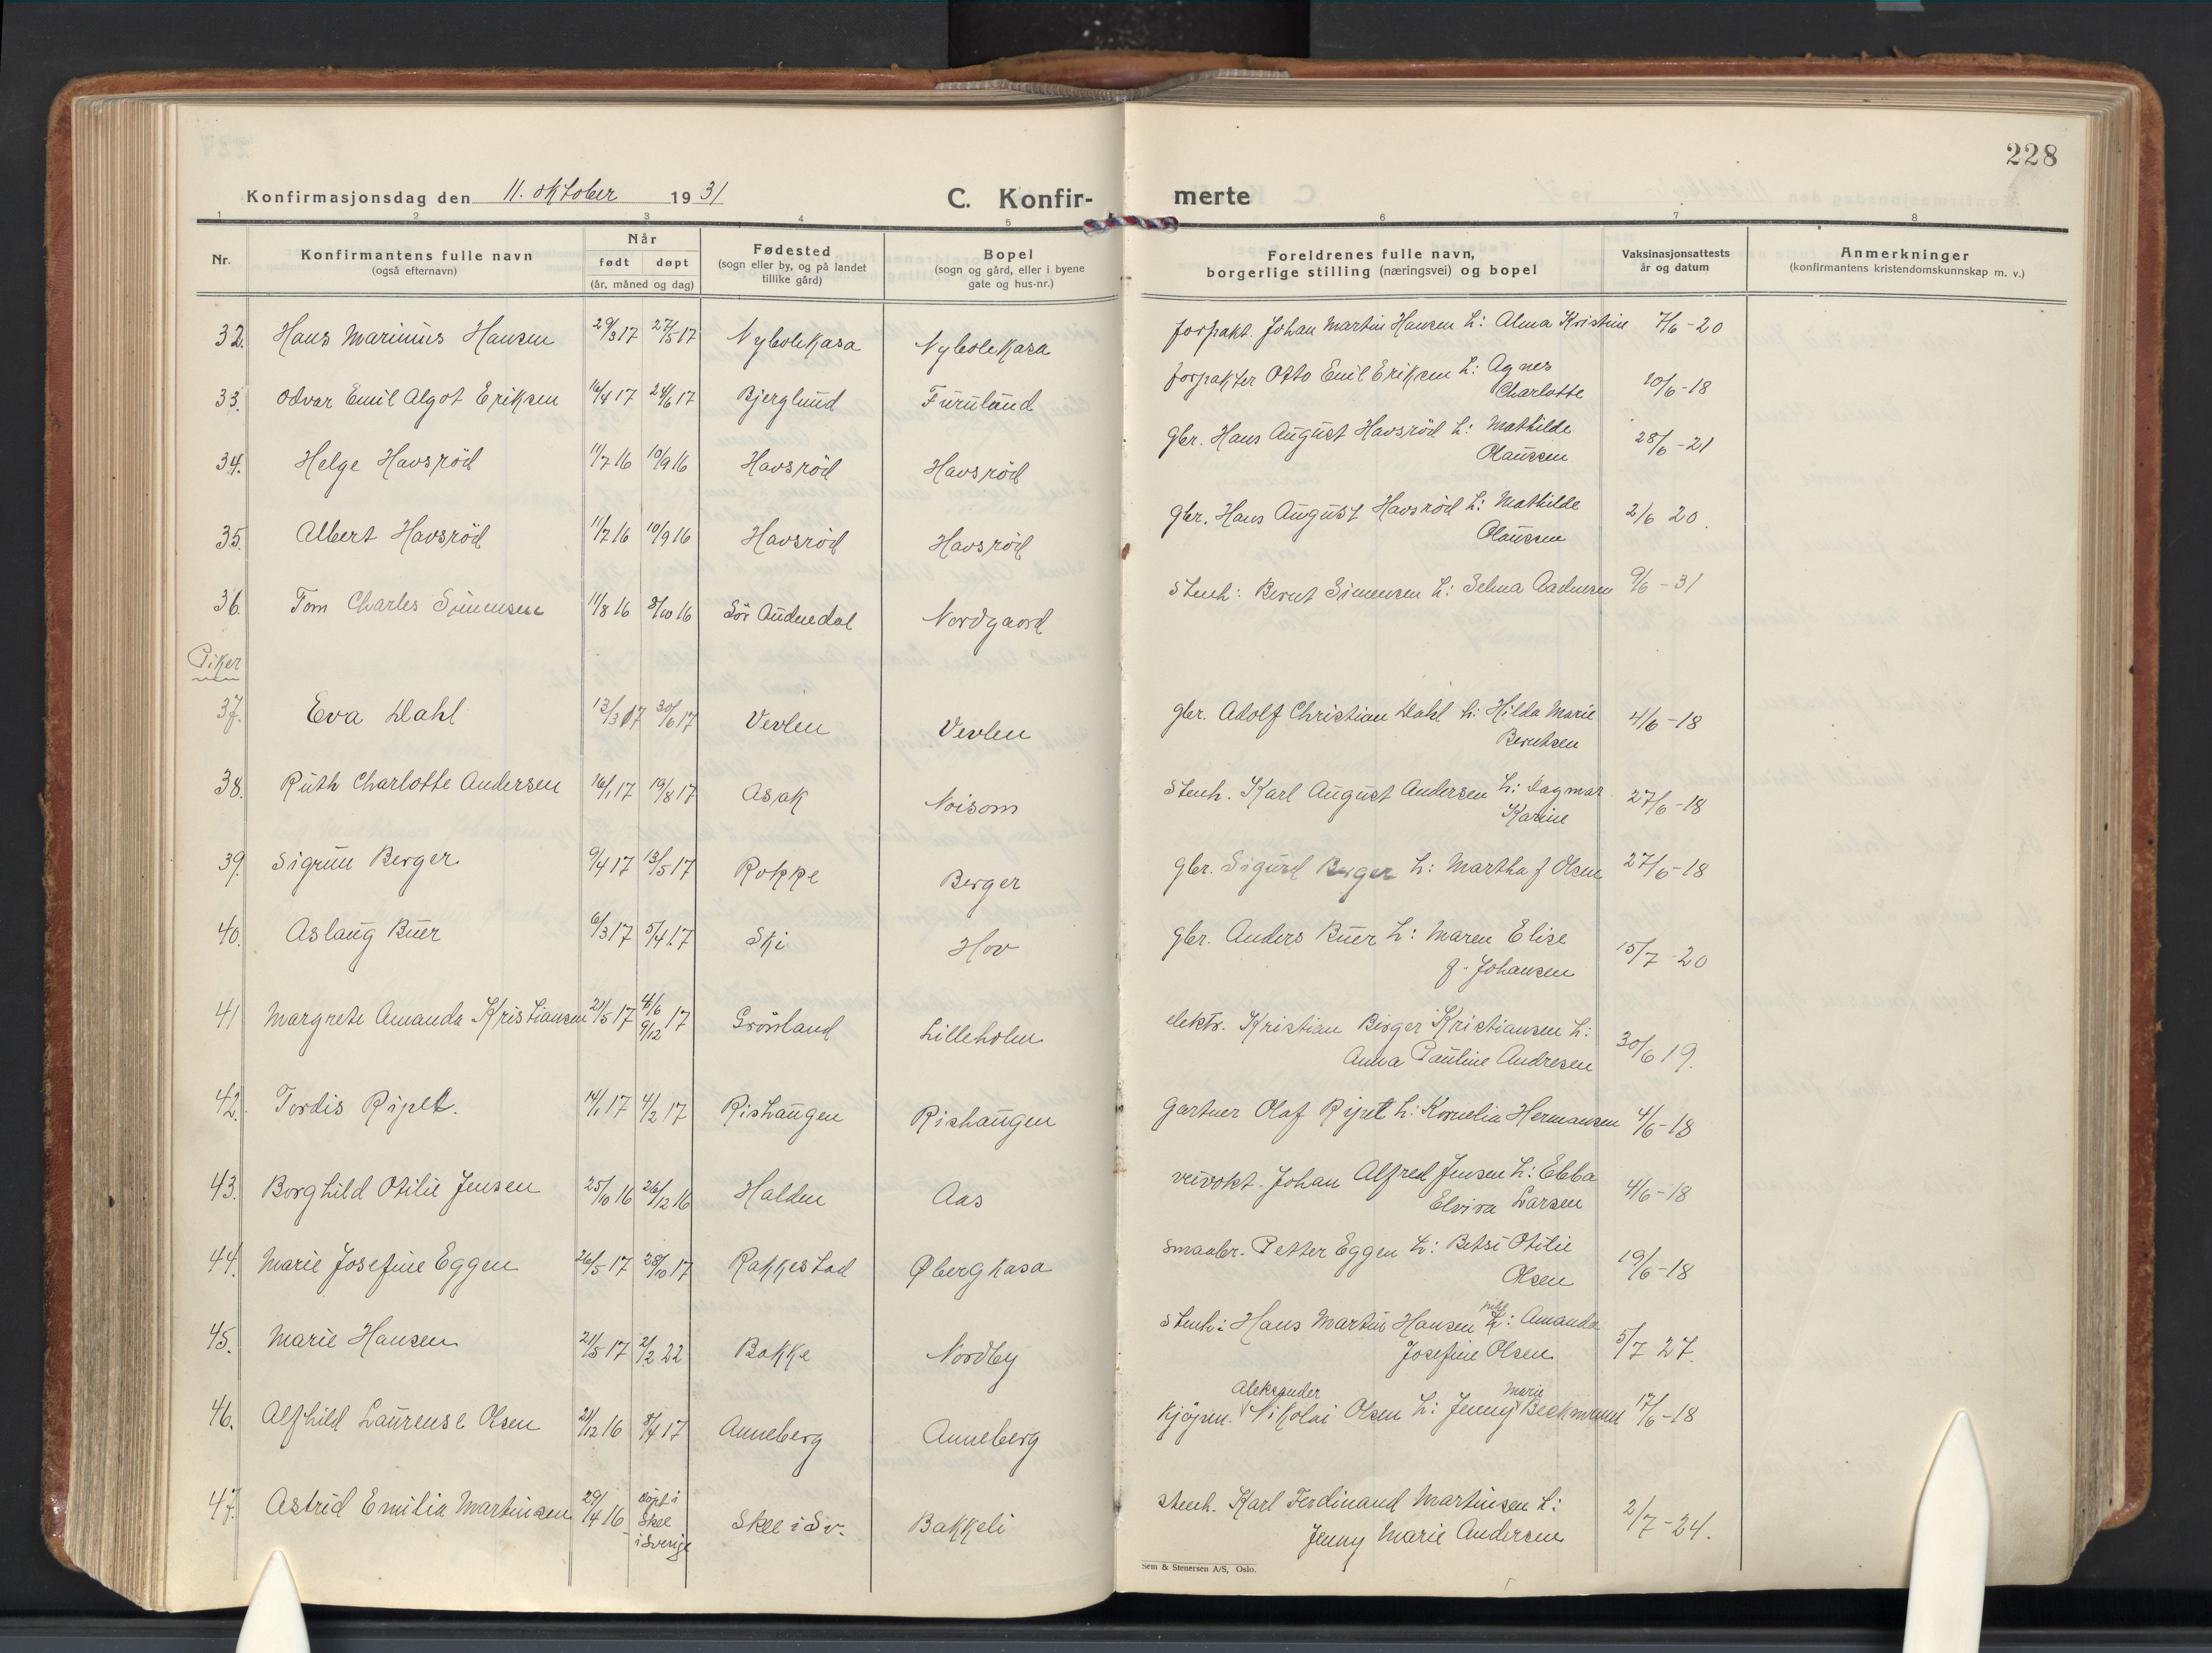 228
Konfirmasjonsdag den 11. oktober 1931
C. Konfirmerte
1 2 3 4 5 6 7 8
Nr.
Konfirmantens fulle navn
(også efternavn)
Når
født døpt
(år, måned og dag)
Fødested
(sogn eller by, og på landet
tillike gård)
Bopel
(sogn og gård, eller i byene
gate og hus-nr.)
Foreldrenes fulle navn,
borgerlige stilling (næringsvei) og bopel
Vaksinasjonsattests
år og datum
Anmerkninger
(konfirmantens kristendomskunnskap m. v.)
32. Hans Marinius Hansen 29/3 17 27/5 17 Nybolekasa Nybolekasa forpakt. Johan Martin Hansen h: Alma Kristine 7/6 - 20
33. Odvar Emil Algot Eriksen 16/4 17 24/6 17 Bjerglund Furulund forpakter Otto Emil Eriksen h: Agnes
Charlotte 20/6 - 18
34. Helge Havsrød 11/7 16 10/9 16 Havsrød Havsrød gbr. Hans August Havsrød h: Mathilde
Olaussen 28/6 - 21
35. Albert Havsrød 11/7 16 10/9 16 Havsrød Havsrød gbr. Hans August Havsrød h: Mathilde
Olaussen 2/6 20.
36. Tom Charles Simensen 11/8 16 8/10 16 Sør Audnedal Nordgaard stenh: Bernt Simensen h: Selma Aadnesen 9/6 - 31
Piker
37. Eva Dahl 13/3 17 30/6 17 Vevlen Vevlen gbr. Adolf Christian Dahl h: Hilda Marie
Berntsen 4/6 - 18
38. Ruth Charlotte Andersen 16/1 17 19/8 17 Asak Noisom stenh. Karl August Andersen h: Dagmar
Karine 27/6 - 18
39. Sigrun Berger 9/4 17 13/5 17 Rokke Berger gbr. Sigurd Berger h: Martha f Olsen 27/6 - 18
40. Aslaug Buer 6/3 17 5/4 17 Ski Hov gbr. Anders Buer h: Maren Elise
f. Johansen 15/7 - 20
41 Margrete Amanda Kristiansen 21/5 17 9/12 17 Grønland Lilleholm elektr. Kristian Birger Kristiansen h:
Anna Pauline Andresen 30/6 19.
42. Tordis Ripelt. 14/1 17 4/2 17 Rishaugen Rishaugen Gartner Olaf Ripelt h: Kornelia Hermansen 4/6 - 18
43. Borghild Otilie Jensen 25/10 16 26/12 16 Halden Aas Johan Alfred Jensen h: Ebba
Elvira Larsen 4/6 - 18
44. Marie Josefine Eggen 26/5 17 28/10 17 Rakkestad Øbergkasa smaabr. Petter Eggen h: Betsi Otilie
Olsen 19/6 - 18
45. Marie Hansen 21/5 17 2/2 22 Bakke Nordby stenh: Hans Martin Hansen h: Amanda
Josefine Olsen 5/7 27.
46. Alfhild Laurense Olsen 21/12 16 8/4 17 Anneberg Anneberg Kjøpm. Aleksander Nikolai Olsen h: Jenny Marie Beckmann 17/6 - 18
47. Astrid Emilia Martinsen 29/4 16 Døpt i
Skee
i Sverige Skee i Sv. Bakkeli stenh. Karl Ferdinand Martinsen h:
Jenny Marie Andersen 2/7 - 24.
Sem & Stenersen A/S, Oslo.